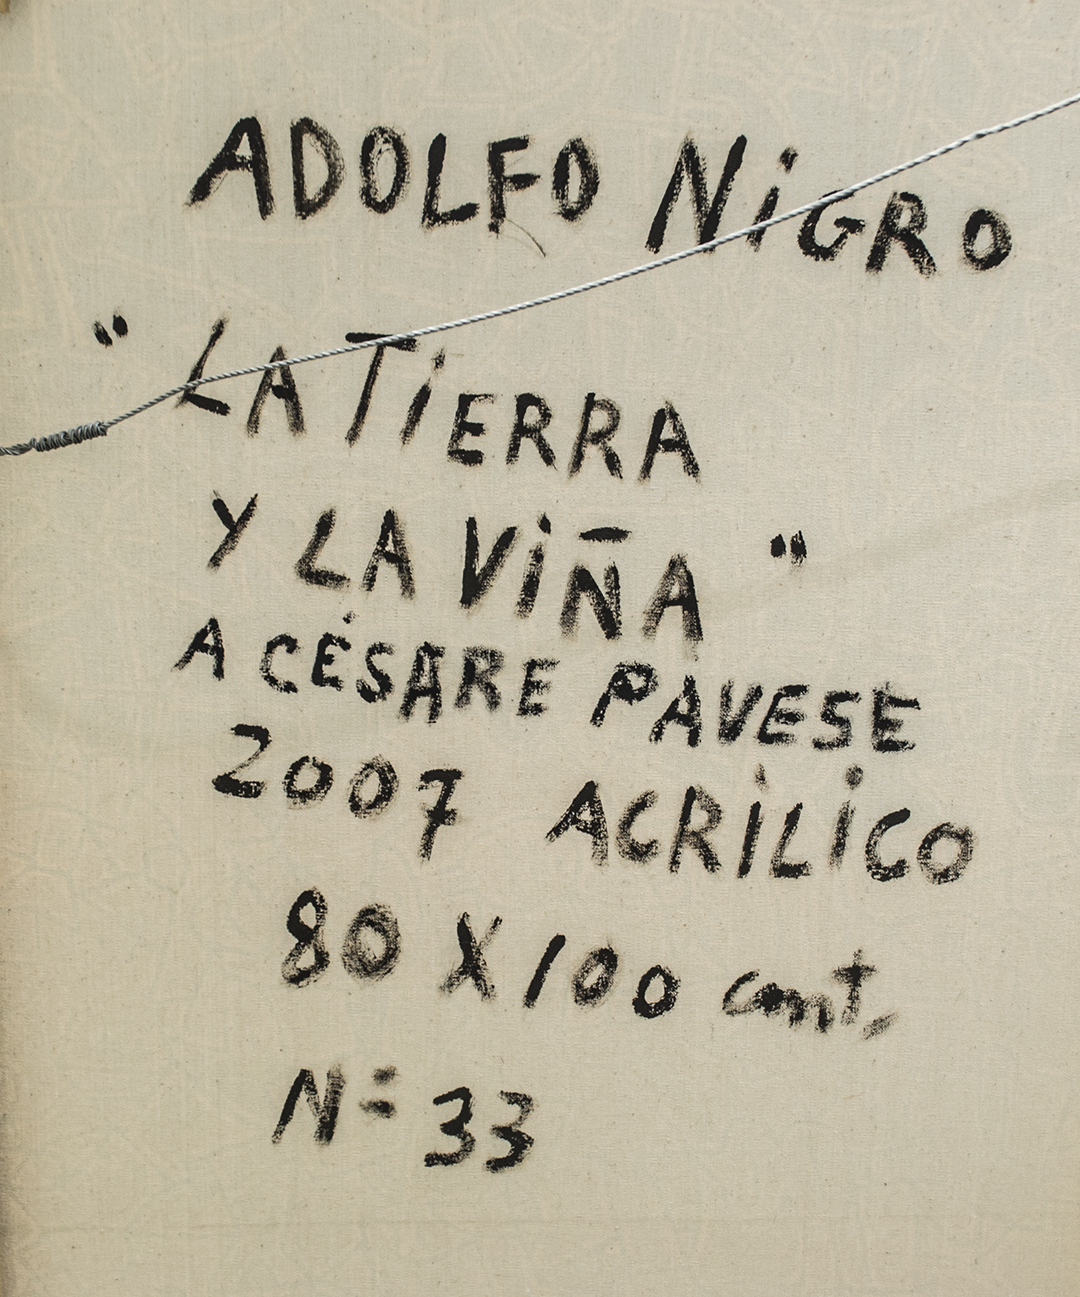 ADOLFO NiGRO
" LA TiERRA
Y LA ViÑA "
A CÉSARE PAVESE
2007 ACRÍLiCO
80 X 100 cmt.
Nº 33